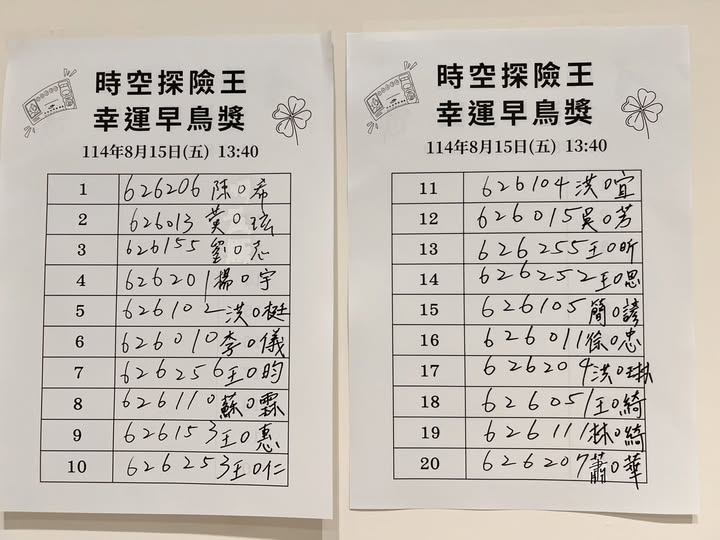 時空探險王
幸運早鳥獎
114年8月15日(五) 13:40
1 626206 陳O希
2 626013 黃O玹
3 626155 劉O志
4 626201 楊O宇
5 626102 洪O梃
6 626010 李O儀
7 626256 王O昀
8 626110 蘇O霖
9 626153 王O惠
10 626253 王O仁
時空探險王
幸運早鳥獎
114年8月15日(五) 13:40
11 626104 洪O宜
12 626015 吳O芳
13 626255 王O昕
14 626252 王O思
15 626105 簡O諺
16 626011 徐O忠
17 626204 洪O琳
18 626051 王O綺
19 626111 林O綺
20 626207 蕭O華